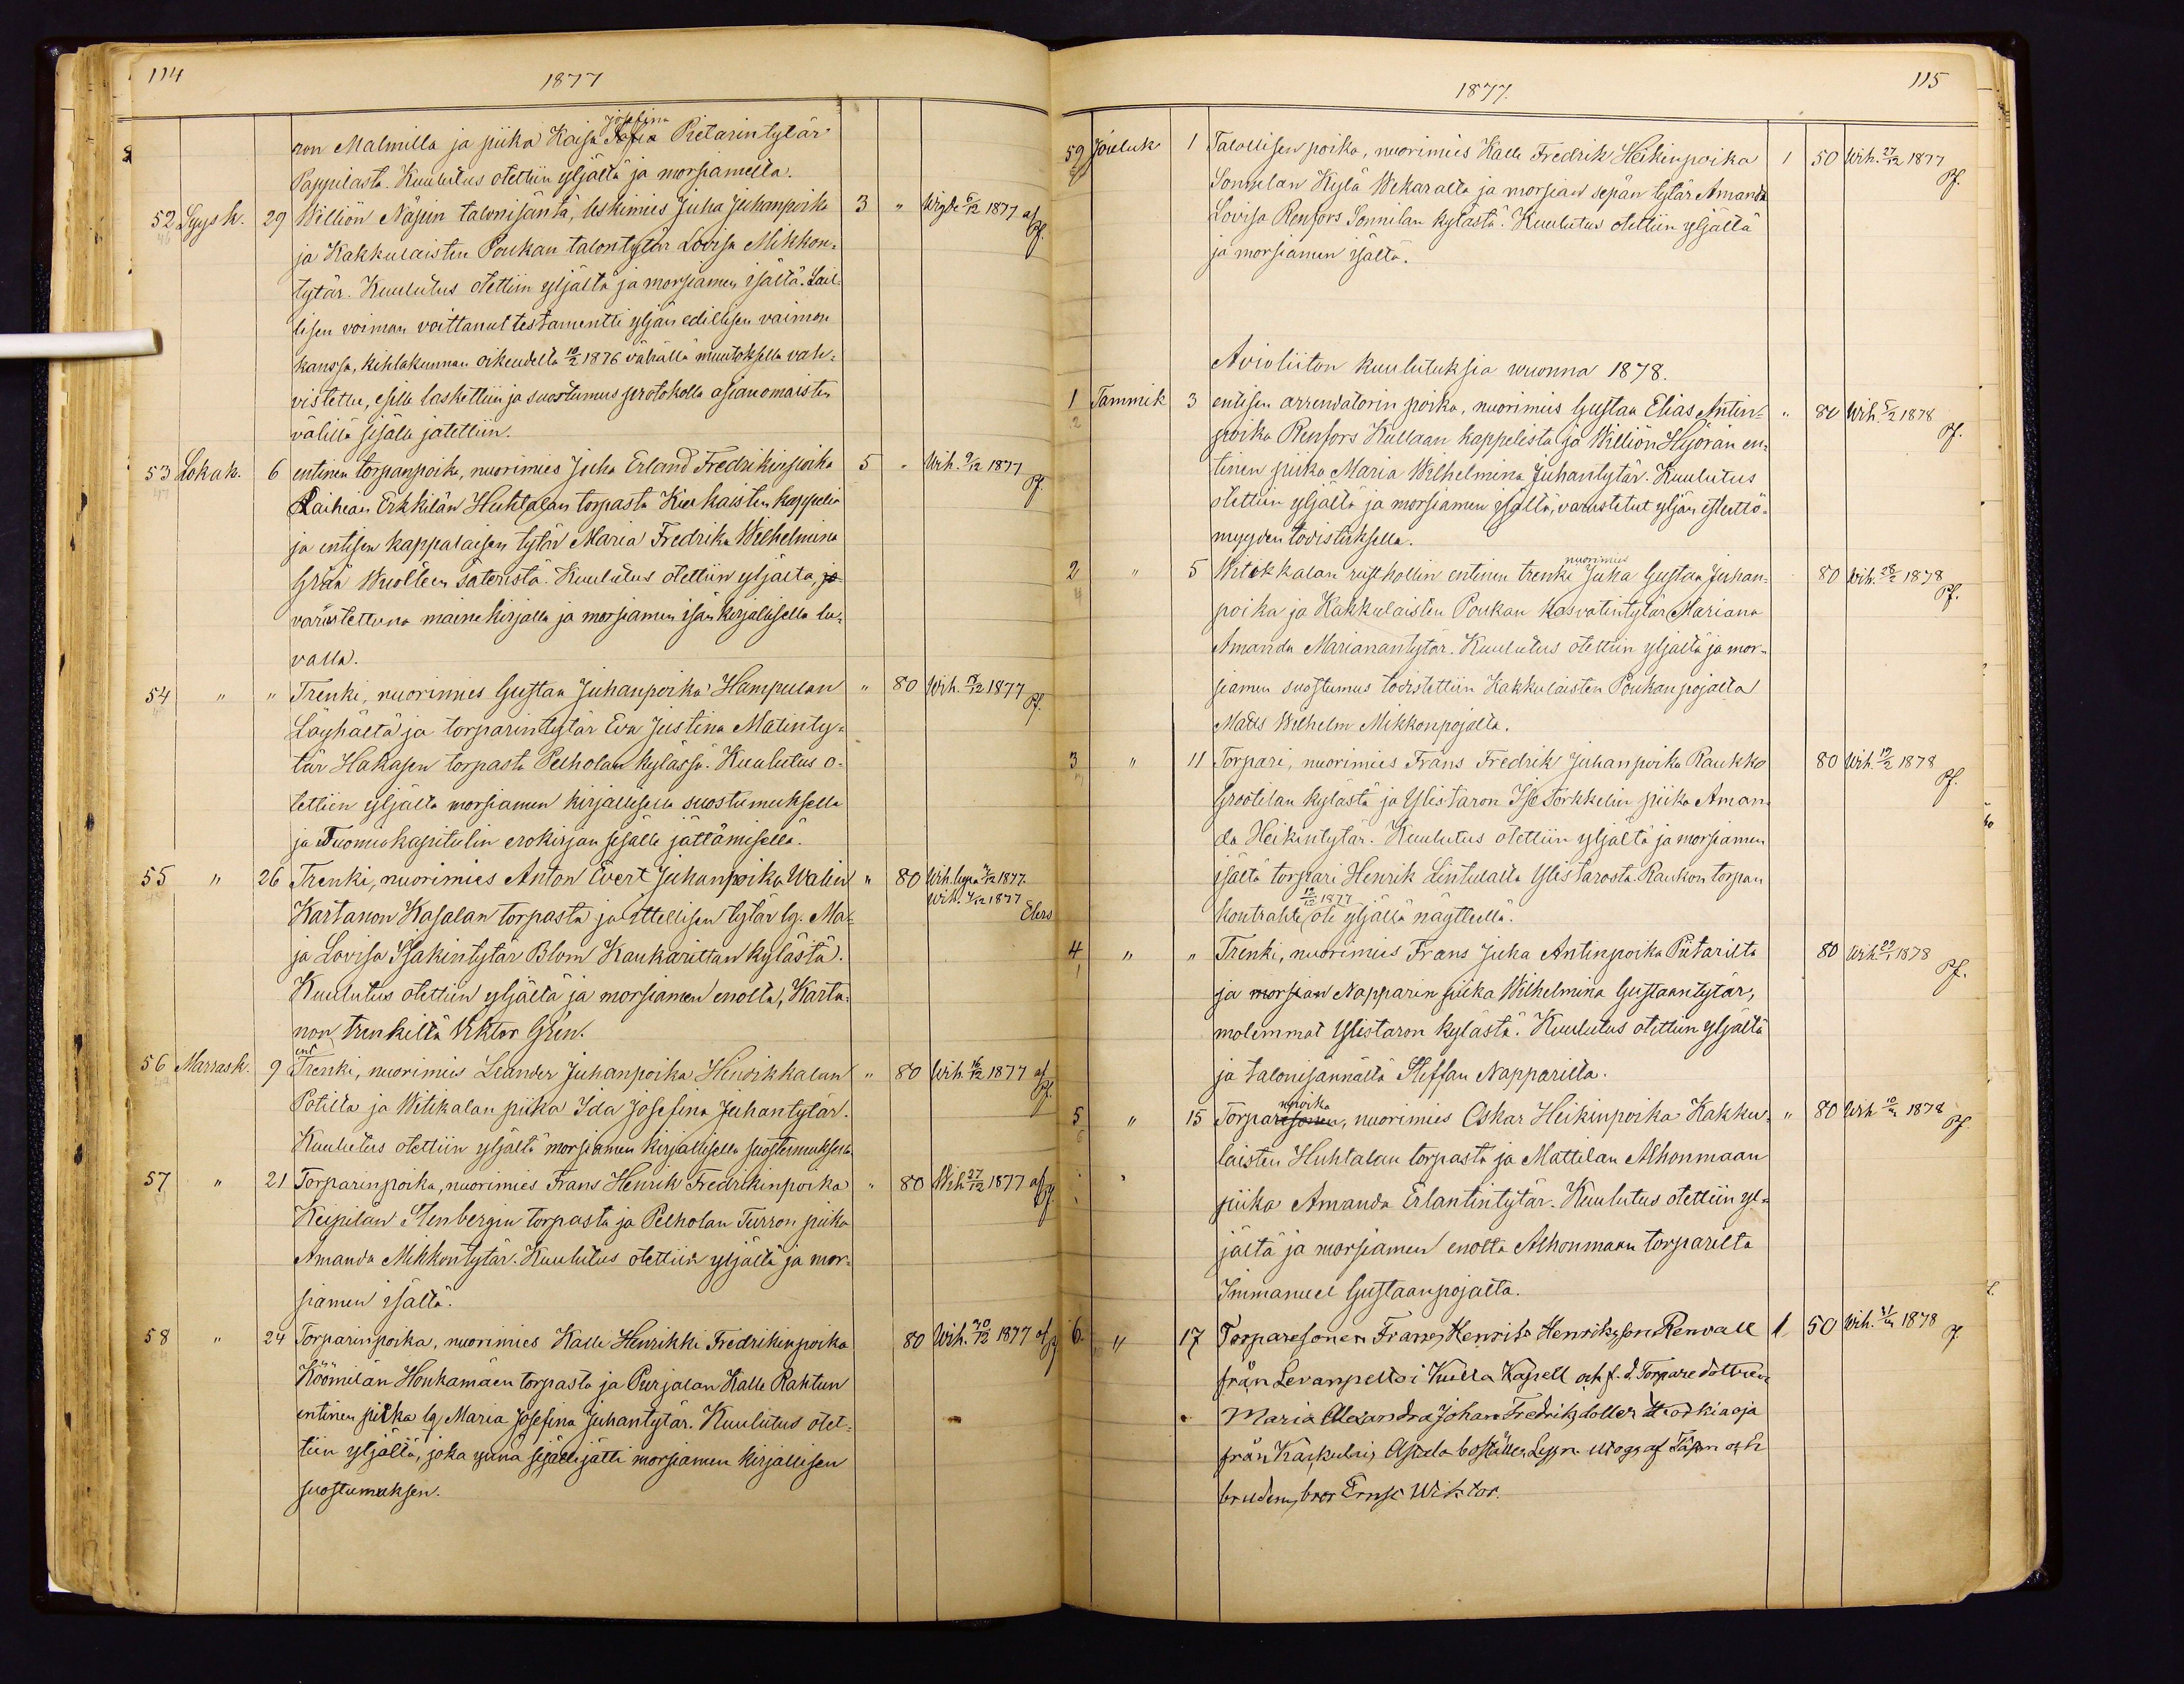 114
1877
ron Malmilla ja piika Kaisa Sofia Josefina Pietarintytär
Pappilasta. Kuulutus otettiin yljältä ja morsiamelta.
52 Syys k. 29 Williön Näpin talonisäntä, leskimies Juha Juhanpoika 3 " Wigde 6/12 1877 af Pf.
ja Kakkulaisten Poukan talontytär Lovisa Mikkon-
tytär. Kuulutus otettiin yljältä ja morsiamen isältä. Lail-
lisen voiman voittanut testamentti yljän edellisen vaimon
kanssa, kihlakunnan oikeudelta 10/2 1876 vähällä muutoksella vah-
vistettu, esille laskettiin ja suostumus protokolla asianomaisten
välillä sisälle jätettiin.
53 Lokak. 6 entinen torpanpoika, nuorimies Juha Erland Fredrikinpoika 5 " Wih. 9/12 1877 Pf.
Raihian Erkkilän Huhtalan torpasta Kiukaisten kappelia
ja entisen kappalaisen tytär Maria Fredrika Wilhelmina
Grän Wuolteen säteristä. Kuulutus otettiin yljältä, ja
varustettuna mainekirjalla ja morsiamen isän kirjallisella lu-
valla.
54 " " Trenki, nuorimies Gustaa Juhanpoika Hampulan " 80 Wih. 9/12 1877 Pf.
Läyhältä ja torparintytär Eva Justina Matinty-
tär Hakasen torpasta Peeholan kylässä. Kuulutus o-
tettiin yljältä morsiamen kirjallisella suostumuksella
ja Tuomiokapitulin erokirjan sisälle jättämisellä.
55 " 26 Trenki, nuorimies Anton Evert Juhanpoika Walin " 80 Wih. 1877.
Kartanon Kasalan torpasta ja ittellisen tytär lg. Ma- Wih. 1/12 1877
ja Lovisa Isakintytär Blom Kaukarittan kylästä. Elers
Kuulutus otettiin yljältä ja morsiamen enolta, Karta-
non trenkiltä Viktor Grén.
56 Marrask. 9 ent Trenki, nuorimies Leander Juhanpoika Henrikkalan " 80 Wih. 16/12 1877 af Pf.
Potilta ja Witikalan piika Ida Josefina Juhantytär.
Kuulutus otettiin yljältä morsiamen kirjallisella suostumuksella
57 " 21 Torparinpoika, nuorimies Frans Henrik Fredrikinpoika " 80 Wih 27/12 1877 af Pf.
Keipilän Stenbergin torpasta ja Peeholan Turron piika
Amanda Mikkontytär. Kuulutus otettiin yljältä ja mor-
siamen isältä.
58 " 24 Torparinpoika, nuorimies Kalle Henrikki Fredrikinpoika 80 Wih. 30/12 1877 af Pf
Köömilän Honkamäen torpasta ja Purjalan Kalle Raktun
entinen piika lg Maria Josefina Juhantytär. Kuulutus otet-
tiin yljältä, joka ynnä sisällejätti morsiamen kirjallisen
suostumuksen.
1877.
115
59 Jouluk 1 Talollisen poika, nuorimies Kalle Fredrik Heikinpoika 1 50 Wih. 27/12 1877 Pf.
Sonnilan Kylä Wekaralta ja morsian sepän tytär Amanda
Lovisa Renfors Sonnilan kylästä. Kuulutus otettiin yljältä
ja morsiamen isältä.
Avioliiton kuulutuksia wuonna 1878.
1 Tammik 3 entisen arrendatorin poika, nuorimies Gustaa Elias Antin- " 80 Wih. 5/2 1878 Pf.
poika Renfors Kullaan kappelista ja Williön Hyörän en-
tinen piika Maria Wilhelmina Juhantytär. Kuulutus
otettiin yljältä ja morsiamen isältä, varustetut yljän esteettö-
myyden todistuksella.
2 " 5 Witikkalan rustholtin entinen trenki nuorimies Juha Gustaa Juhan- 80 Wih. 28/2 1878 Pf.
poika ja Kakkulaisten Poukan kasvatintytär Mariana
Amanda Marianantytär. Kuulutus otettiin yljältä ja mor-
siamen suostumus todistettiin Kakkulaisten Poukanpojalta
Matts Wilhelm Mikkonpojalta.
3 " 11 Torpari, nuorimies Frans Fredrik Juhanpoika Raukko 80 Wih. 19/2 1878 Pf.
Grootilan kylästä ja Ylistaron Iso Torkkelin piika Aman-
da Heikintytär. Kuulutus otettiin yljältä ja morsiamen
isältä torpari Henrik Lintulalta Ylistarosta. Raukon torpan
kontrahti 12/12 1877 ote yljältä näytteellä.
4 " " Trenki, nuorimies Frans Juha Antinpoika Pietarilta 80 Wih 29/1 1878 Pf.
ja morsian Napparin piika Wilhelmina Gustaantytär,
molemmat Ylistaron kylästä. Kuulutus otettiin yljältä
ja talonisännältä Steffan Napparilla.
5 " 15 Torparesonen npoika, nuorimies Oskar Heikinpoika Kakku- " 80 Wih 1878 Pf.
laisten Huhtalan torpasta ja Mattilan Alhonmaan
piika Amanda Erlantintytär. Kuulutus otettiin yl-
jältä ja morsiamen enolta Alhonmaan torparilta
Immanuel Gustaanpojalta.
6. " 17 Torparesonen Frans Henrik Henriksson Renvall 1 50 Wih. 1878
från Levanpelto i Kulla Kapell och f. d. Torparedottren
Maria Alexandra Johan Fredriksdotter
från Kakkulais
brudens bror Ernst Wiktor.